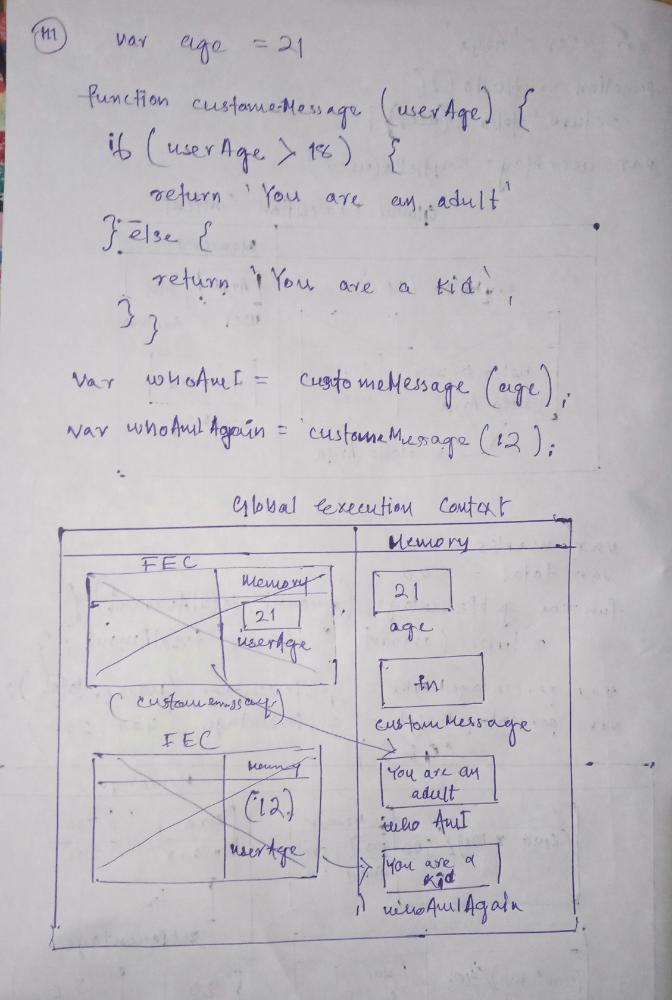 var age = 21
function customeMessage (userAge) {
if (userAge > 18) {
return 'You are an adult'
} else {
return 'You are a kid';
} }
var whoAmI = customeMessage (age);
var whoAmIAgain = customeMessage (12);
Global execution context
Memory
FEC
Memory
21
userAge
21
age
fn
(customemssag)
customMessage
FEC
You are an
adult
(12)
who AmI
userAge
You are a
kid
whoAmIAgain